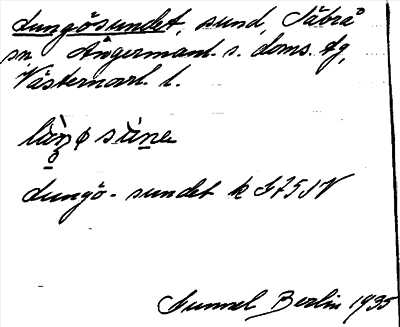 Lungösundet, sund, Säbrå
sn, Ångermanl. s. doms. tg,
Västernorrl. l.
Lungö-sundet k I 75 SV
Gunnel Berlin 1935